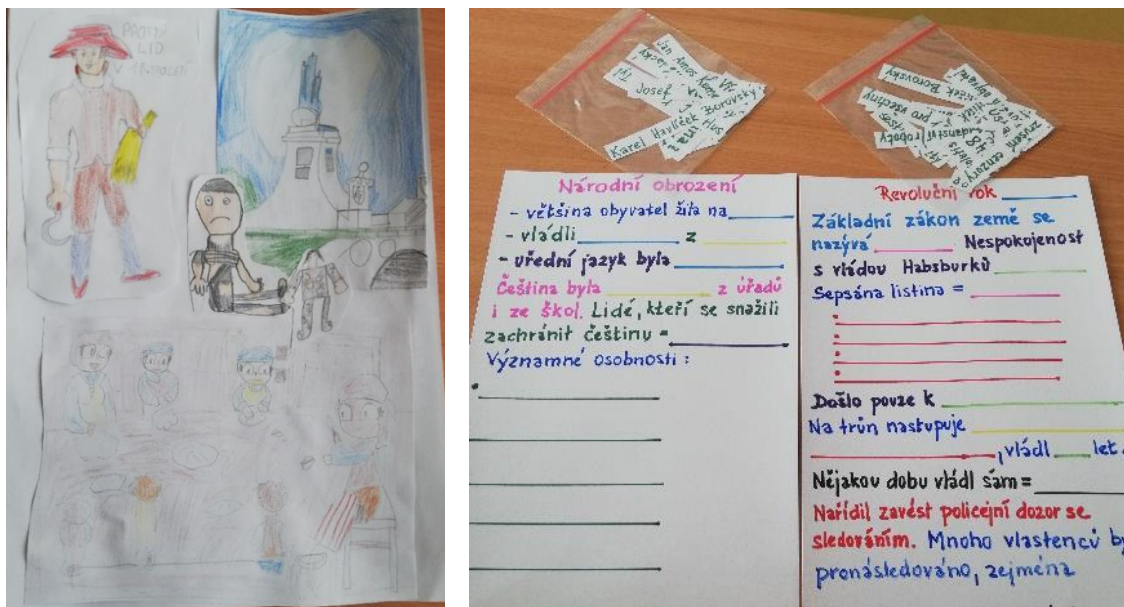 LID
Josef
Karel Havlíček Borovský
Hus
Borovský
pro všechny
roboty
zrušení cenzury
Národní obrození
- většina obyvatel žila na
- vládli z
- úřední jazyk byla
Čeština byla z úřadů
i ze škol. Lidé, kteří se snažili
zachránit češtinu =
Významné osobnosti :
Revoluční rok
Základní zákon země se
nazývá Nespokojenost
s vládou Habsburků
Sepsána listina =
Došlo pouze k
Na trůn nastupuje
, vládl let.
Nějakou dobu vládl sám =
Nařídil zavést policejní dozor se
sledováním. Mnoho vlastenců by
pronásledováno, zejména